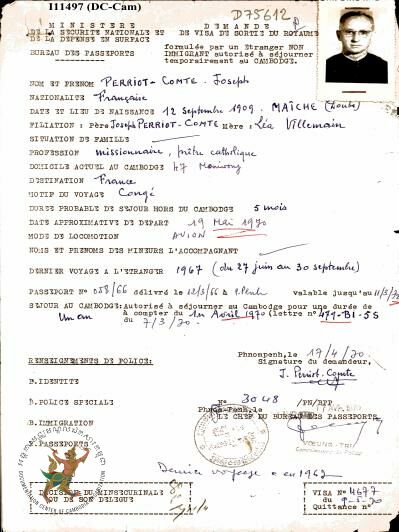 I11497 (DC-Cam)
D75612
MINISTERE
DE LA SECURITE NATIONALE ET
DE LA DEFENSE EN SURFACE
BUREAU DES PASSEPORTS
DEMANDE
DE VISA DE SORTIE DU ROYAUME
formulée par un Etranger NON
IMMIGRANT autorisé à séjourner
temporairement au CAMBODGE.
NOM ET PRENOM PERRIOT-COMTE Joseph
NATIONALITE Française
DATE ET LIEU DE NAISSANCE 12 septembre 1909 - MAÎCHE (Doubs)
FILIATION : Père Joseph PERRIOT-COMTE Mère : Léa Villemain
SITUATION DE FAMILLE
PROFESSION missionnaire, prêtre catholique
DOMICILE ACTUEL AU CAMBODGE 47 Monivong
DESTINATION France
MOTIF DU VOYAGE Congé
DUREE PROBABLE DE SEJOUR HORS DU CAMBODGE 5 mois
DATE APPROXIMATIVE DE DEPART 19 Mai 1970
MODE DE LOCOMOTION AVION
NOMS ET PRENOMS DES MINEURS L'ACCOMPAGNANT
DERNIER VOYAGE A L'ETRANGER 1967 (du 27 juin au 30 septembre)
PASSEPORT N° 058/66 délivré le 12/3/66 à P.Penh valable jusqu'au
SEJOUR AU CAMBODGE: Autorisé à séjourner au Cambodge pour une durée de
Un an à compter du 1er Avril 1970 (lettre n° 479-BI-SS
du 7/3/70.
RENSEIGNEMENTS DE POLICE:
Phnompenh, le 17/4/70
Signature du demandeur,
J. Perriot-Comte
B.IDENTITE
B.POLICE SPECIALE
N° 3048 /PN/BPP
Phnom-Penh, le
LE CHEF DU BUREAU DES PASSEPORTS,
B.IMMIGRATION
B.PASSEPORTS
Dernier voyage en 1967
DECISION DU MINSECURINALE
OU DE SON DELEGUE
VISA N° 4697
du 9-5-70
Quittance n°